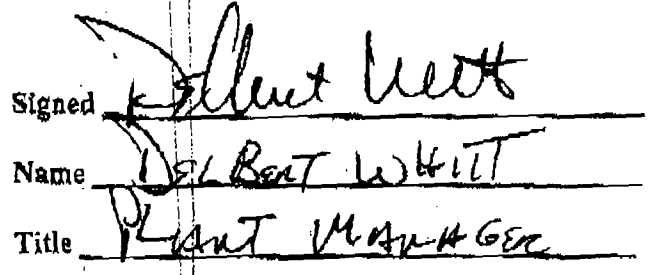 Signed Delbert Whitt
Name DELBERT WHITT
Title PLANT MANAGER